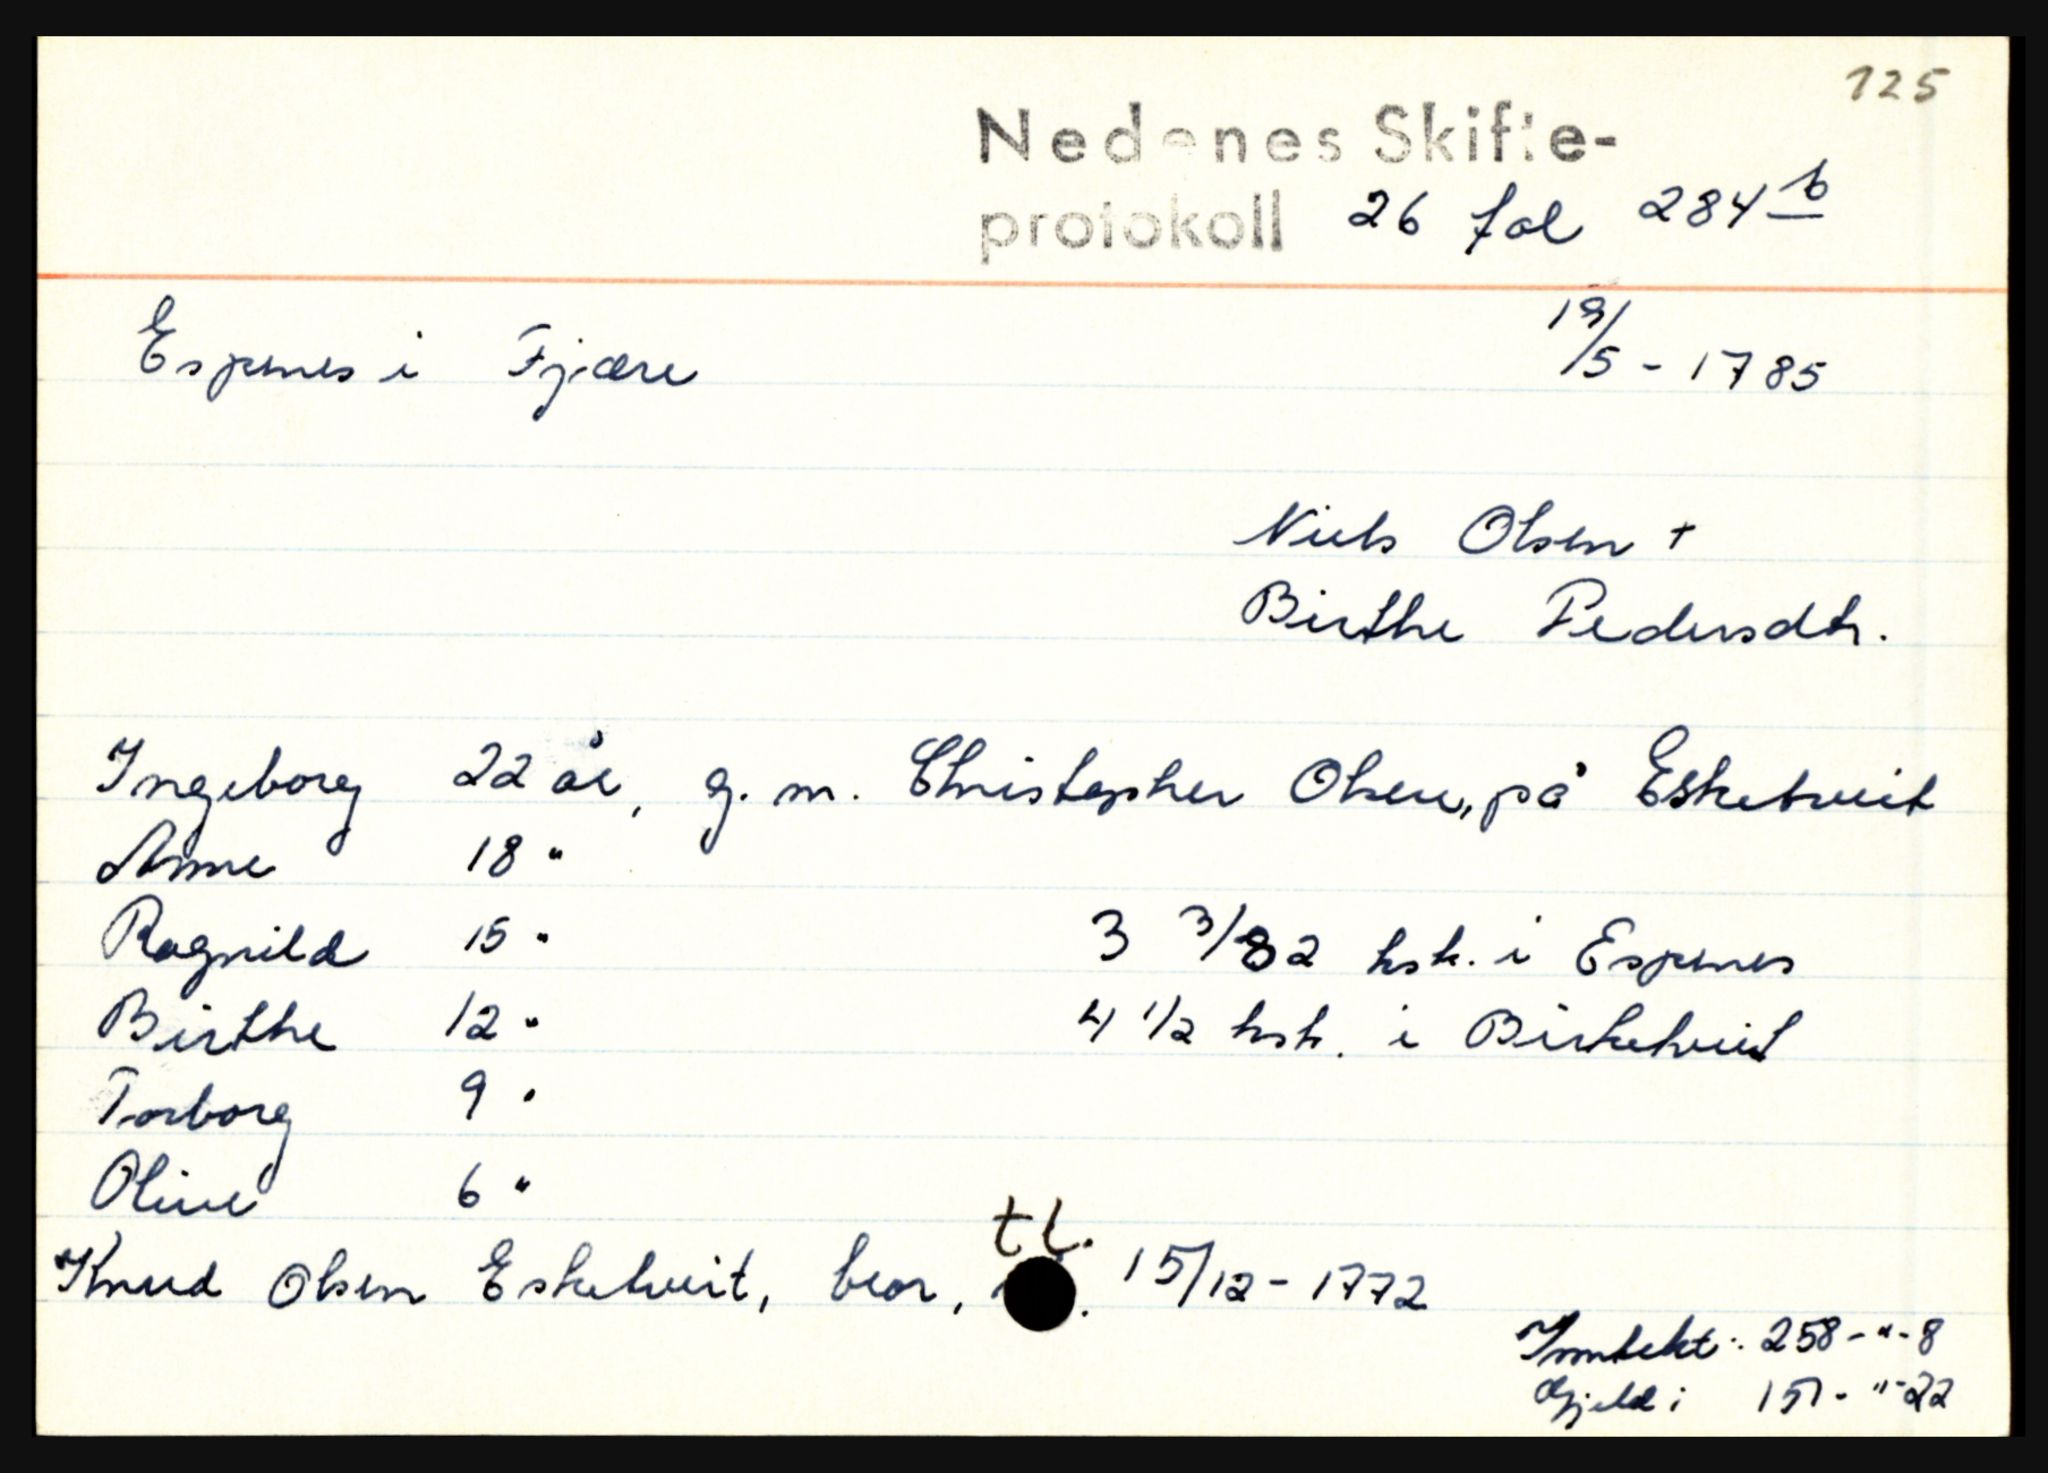 125
Nedenes Skifte-
protokoll 26 fol 284 b
Espenes i Fjære 19/5 - 1785
Niels Olsen +
Birthe Pedersdtr.
Ingeborg 22 år, g. m. Christopher Olsen, på Esketveit
Anne 18 "
Ragnild 15 " 3 3/82 hsk. i Espenes
Birthe 12 " 4 1/2 hsk. i Birketveit
Torborg 9 "
Olive 6 "
Knud Olsen Esketveit, beor, tl. 15/12 - 1772
Inntekt: 258 - " - 8
Gjeld: 151 - " - 22